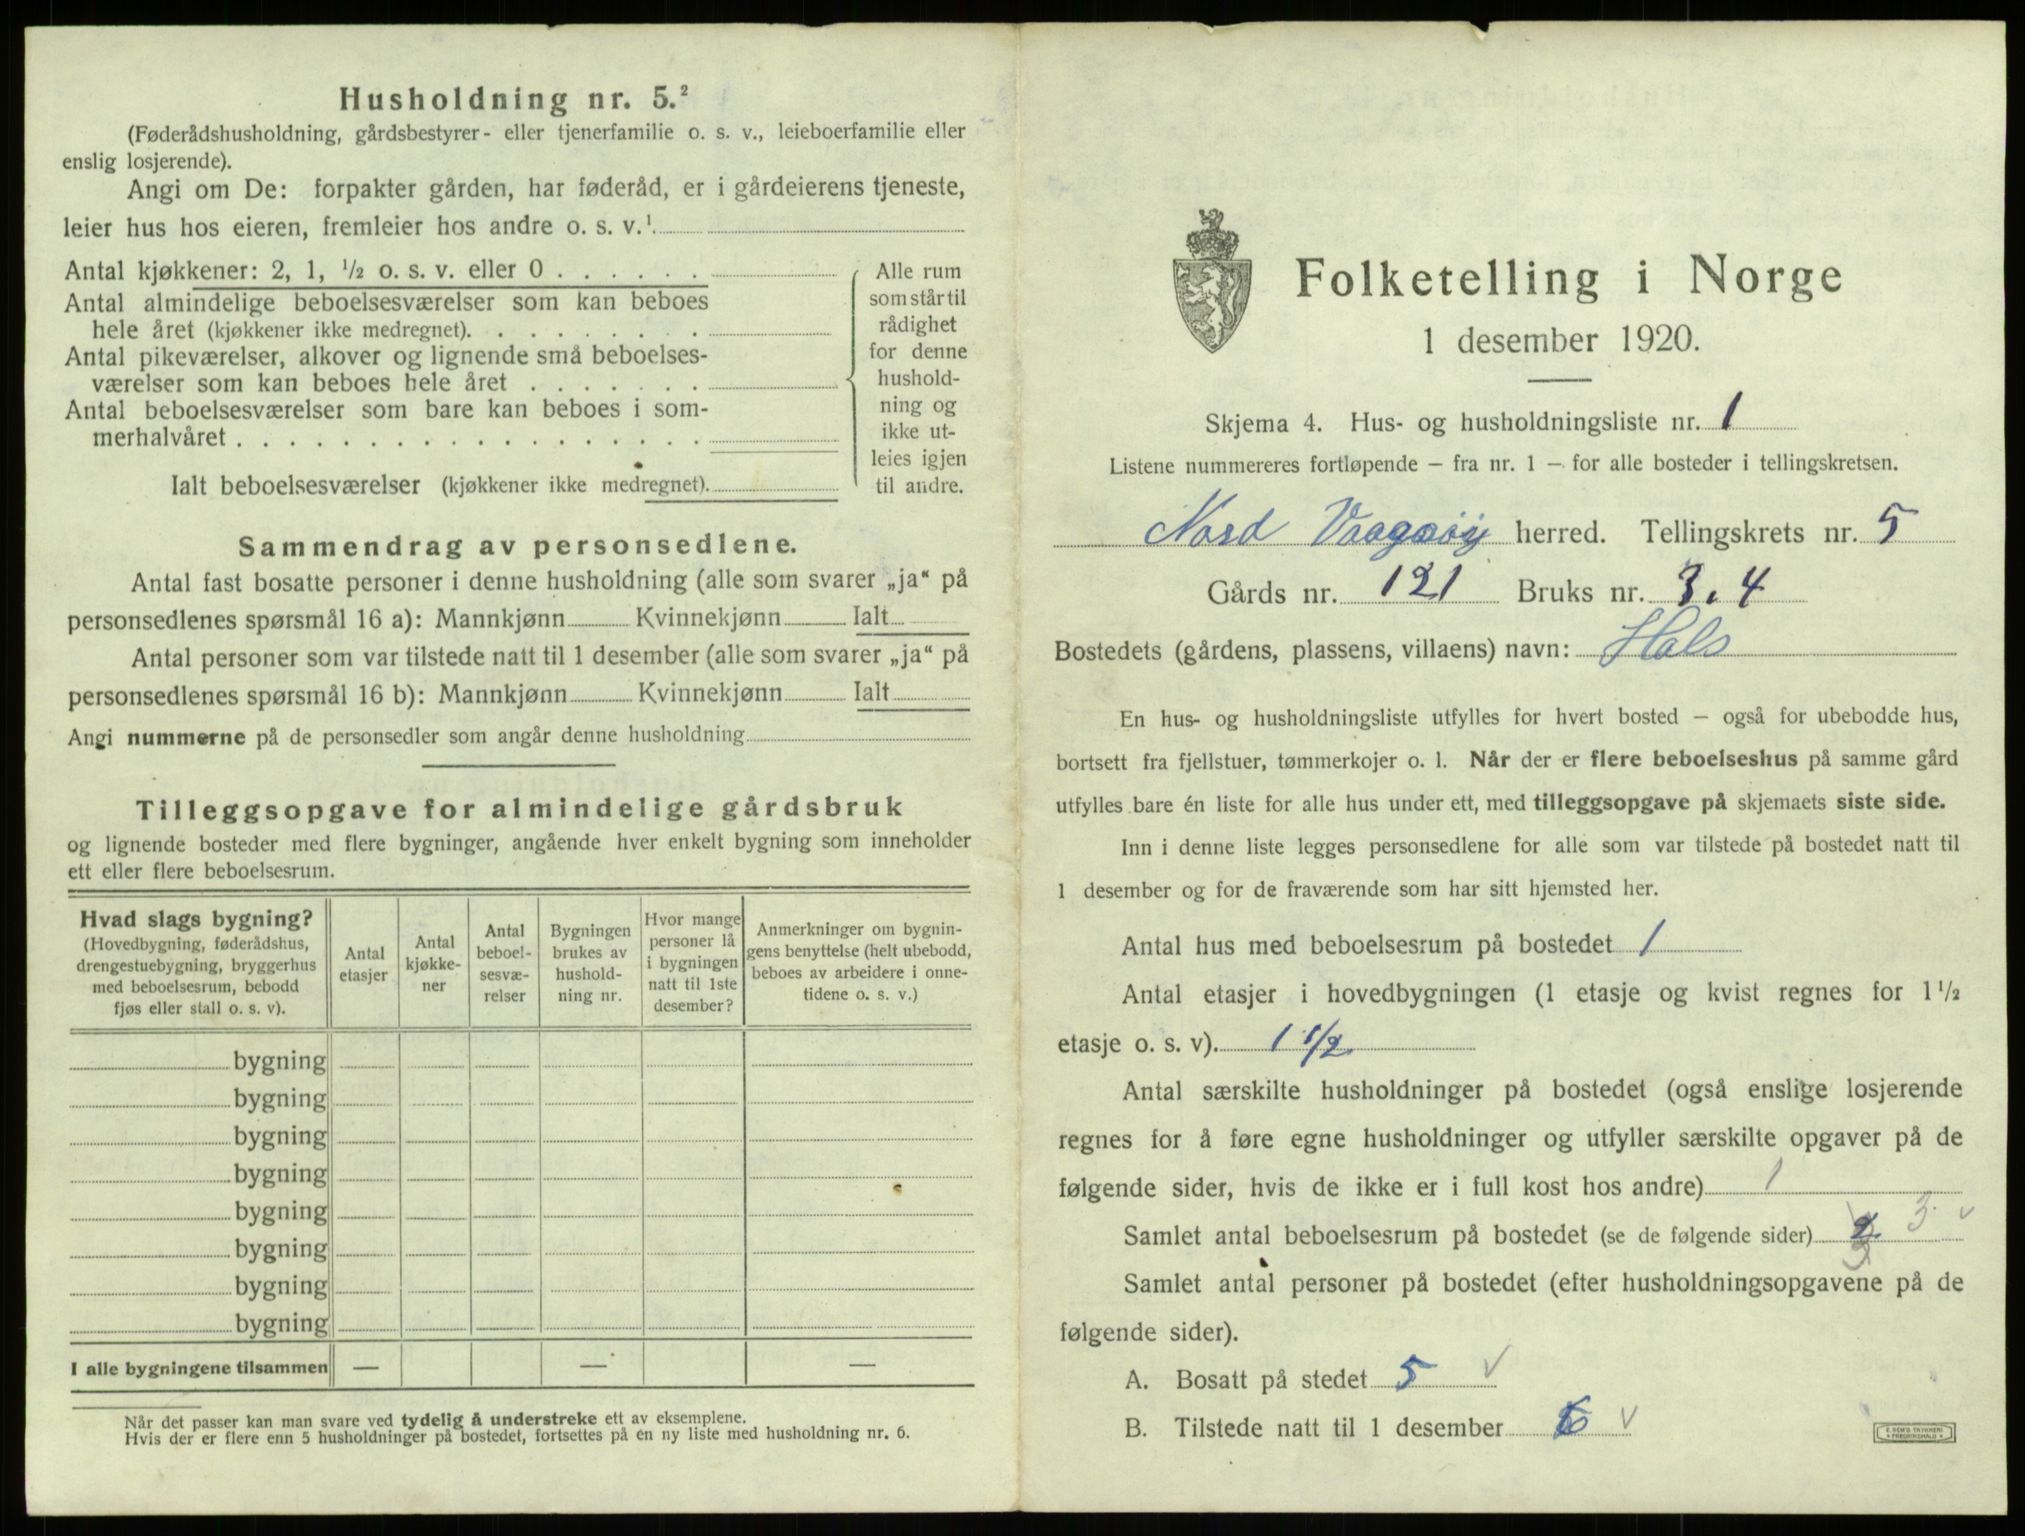 Husholdning nr. 5.²
(Føderådshusholdning, gårdsbestyrer- eller tjenerfamilie o. s. v., leieboerfamilie eller
enslig losjerende).
Angi om De: forpakter gården, har føderåd, er i gårdeierens tjeneste,
leier hus hos eieren, fremleier hos andre o. s. v.¹
Antal kjøkkener: 2, 1, ½ o. s. v. eller 0 . . . . . .
Antal almindelige beboelsesværelser som kan beboes
hele året (kjøkkener ikke medregnet). . . . . . . . .
Antal pikeværelser, alkover og lignende små beboelses-
værelser som kan beboes hele året . . . . . . .
Antal beboelsesværelser som bare kan beboes i som-
merhalvåret . . . . . . . . . . . . . . . . . .
Ialt beboelsesværelser (kjøkkener ikke medregnet).
Alle rum
som står til
rådighet
for denne
hushold-
ning og
ikke ut-
leies igjen
til andre.
Sammendrag av personsedlene.
Antal fast bosatte personer i denne husholdning (alle som svarer „ja“ på
personsedlenes spørsmål 16 a): Mannkjønn Kvinnekjønn Ialt
Antal personer som var tilstede natt til 1 desember (alle som svarer „ja“ på
personsedlenes spørsmål 16 b): Mannkjønn Kvinnekjønn Ialt
Angi nummerne på de personsedler som angår denne husholdning
Tilleggsopgave for almindelige gårdsbruk
og lignende bosteder med flere bygninger, angående hver enkelt bygning som inneholder
ett eller flere beboelsesrum.
Hvad slags bygning?
(Hovedbygning, føderådshus,
drengestuebygning, bryggerhus
med beboelsesrum, bebodd
fjøs eller stall o. s. v).
Antal
etasjer
Antal
kjøkke-
ner
Antal
beboel-
sesvæ-
relser
Bygningen
brukes av
hushold-
ning nr.
Hvor mange
personer lå
i bygningen
natt til 1ste
desember?
Anmerkninger om bygnin-
gens benyttelse (helt ubebodd,
beboes av arbeidere i onne-
tidene o. s. v.)
bygning
bygning
bygning
bygning
bygning
bygning
bygning
bygning
I alle bygningene tilsammen — — —
Når det passer kan man svare ved tydelig å understreke ett av eksemplene.
Hvis der er flere enn 5 husholdninger på bostedet, fortsettes på en ny liste med husholdning nr. 6.
Folketelling i Norge
1 desember 1920.
Skjema 4. Hus- og husholdningsliste nr. 1
Listene nummereres fortløpende — fra nr. 1 — for alle bosteder i tellingskretsen.
Nord Vaagsøy herred. Tellingskrets nr. 5
Gårds nr. 121 Bruks nr. 3.4
Bostedets (gårdens, plassens, villaens) navn: Hals
En hus- og husholdningsliste utfylles for hvert bosted — også for ubebodde hus,
bortsett fra fjellstuer, tømmerkojer o. l. Når der er flere beboelseshus på samme gård
utfylles bare én liste for alle hus under ett, med tilleggsopgave på skjemaets siste side.
Inn i denne liste legges personsedlene for alle som var tilstede på bostedet natt til
1 desember og for de fraværende som har sitt hjemsted her.
Antal hus med beboelsesrum på bostedet 1
Antal etasjer i hovedbygningen (1 etasje og kvist regnes for 1½
etasje o. s. v). 1 1/2
Antal særskilte husholdninger på bostedet (også enslige losjerende
regnes for å føre egne husholdninger og utfyller særskilte opgaver på de
følgende sider, hvis de ikke er i full kost hos andre) 1
Samlet antal beboelsesrum på bostedet (se de følgende sider) 2 3 3. v
Samlet antal personer på bostedet (efter husholdningsopgavene på de
følgende sider).
A. Bosatt på stedet 5 v
B. Tilstede natt til 1 desember 6 v
E. SEM'S TRYKKERI
FREDRIKSHALD